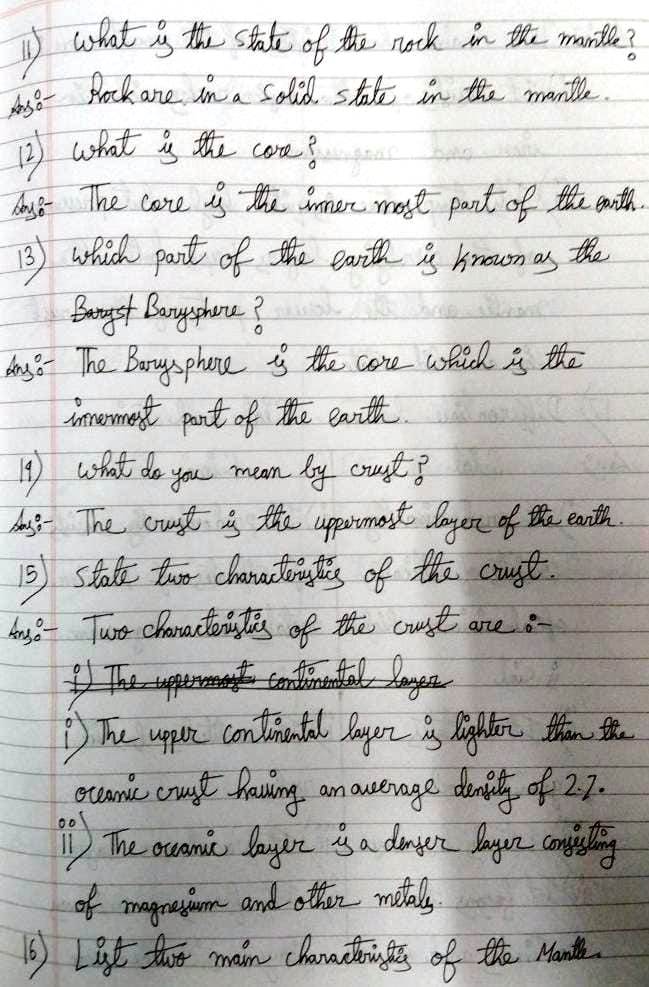 11) What is the state of the rock in the mantle?
Ans:- Rock are in a solid state in the mantle.
12) What is the core?
Ans:- The core is the inner most part of the earth.
13) Which part of the earth is known as the
Baryst Barysphere?
Ans:- The Barysphere is the core which is the
innermost part of the earth.
14) What do you mean by crust?
Ans:- The crust is the uppermost layer of the earth.
15) State two characteristics of the crust.
Ans:- Two characteristics of the crust are :-
i) The uppermost continental layer
i) The upper continental layer is lighter than the
oceanic crust having an average density of 2.7.
ii) The oceanic layer is a denser layer consisting
of magnesium and other metals.
16) List two main characteristics of the Mantle.